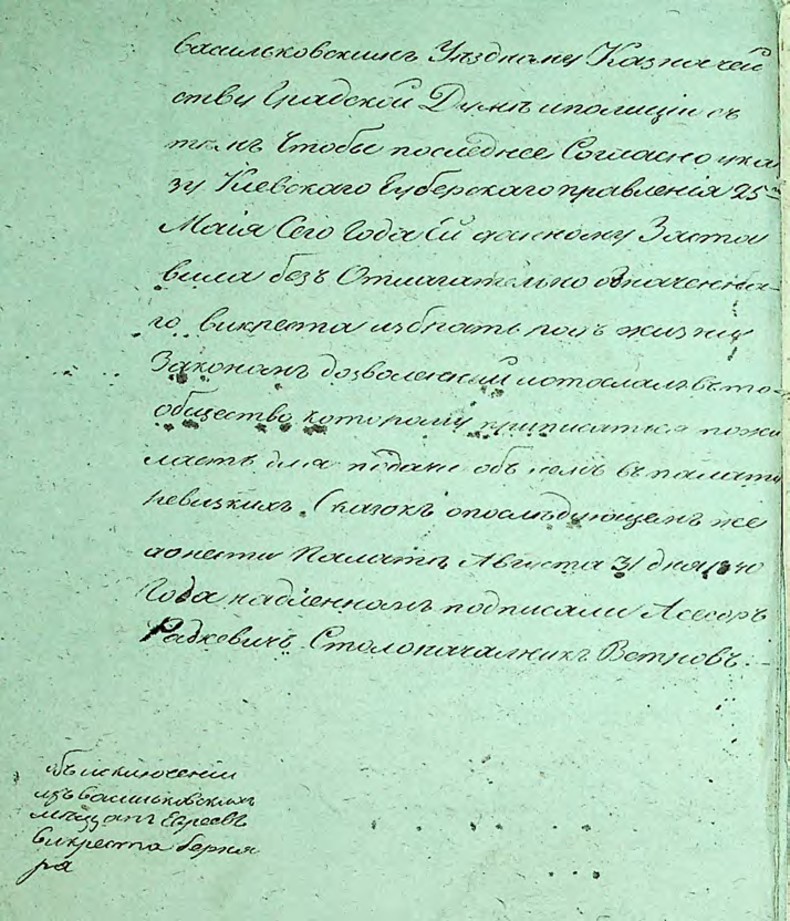 Васильковскимъ Уѣзднымъ Казначей
ству Градской Думѣ и полиціи съ
тѣмъ Чтобы последнее Согласно ука
зу Кіевскаго Губерскаго правленія 25го
Маія Сего Года Ей данному Заста
вила безъ Отлагательно означенна-
го викреста избрать родъ жизни
Законамъ дозволенный и отослала въ то
общество которому приписаться поже
лаетъ для подачи объ немъ въ палату
ревизкихъ Сказокъ опослѣдующемъ же
донести Палатѣ Августа 31 дня 1840
Года на подлинномъ подписали Асесоръ
Радкевичъ Столоначалникъ Ветровъ.
объ исключеніи
изъ васильковскихъ
мѣщанъ Евреевъ
викреста берка
ра